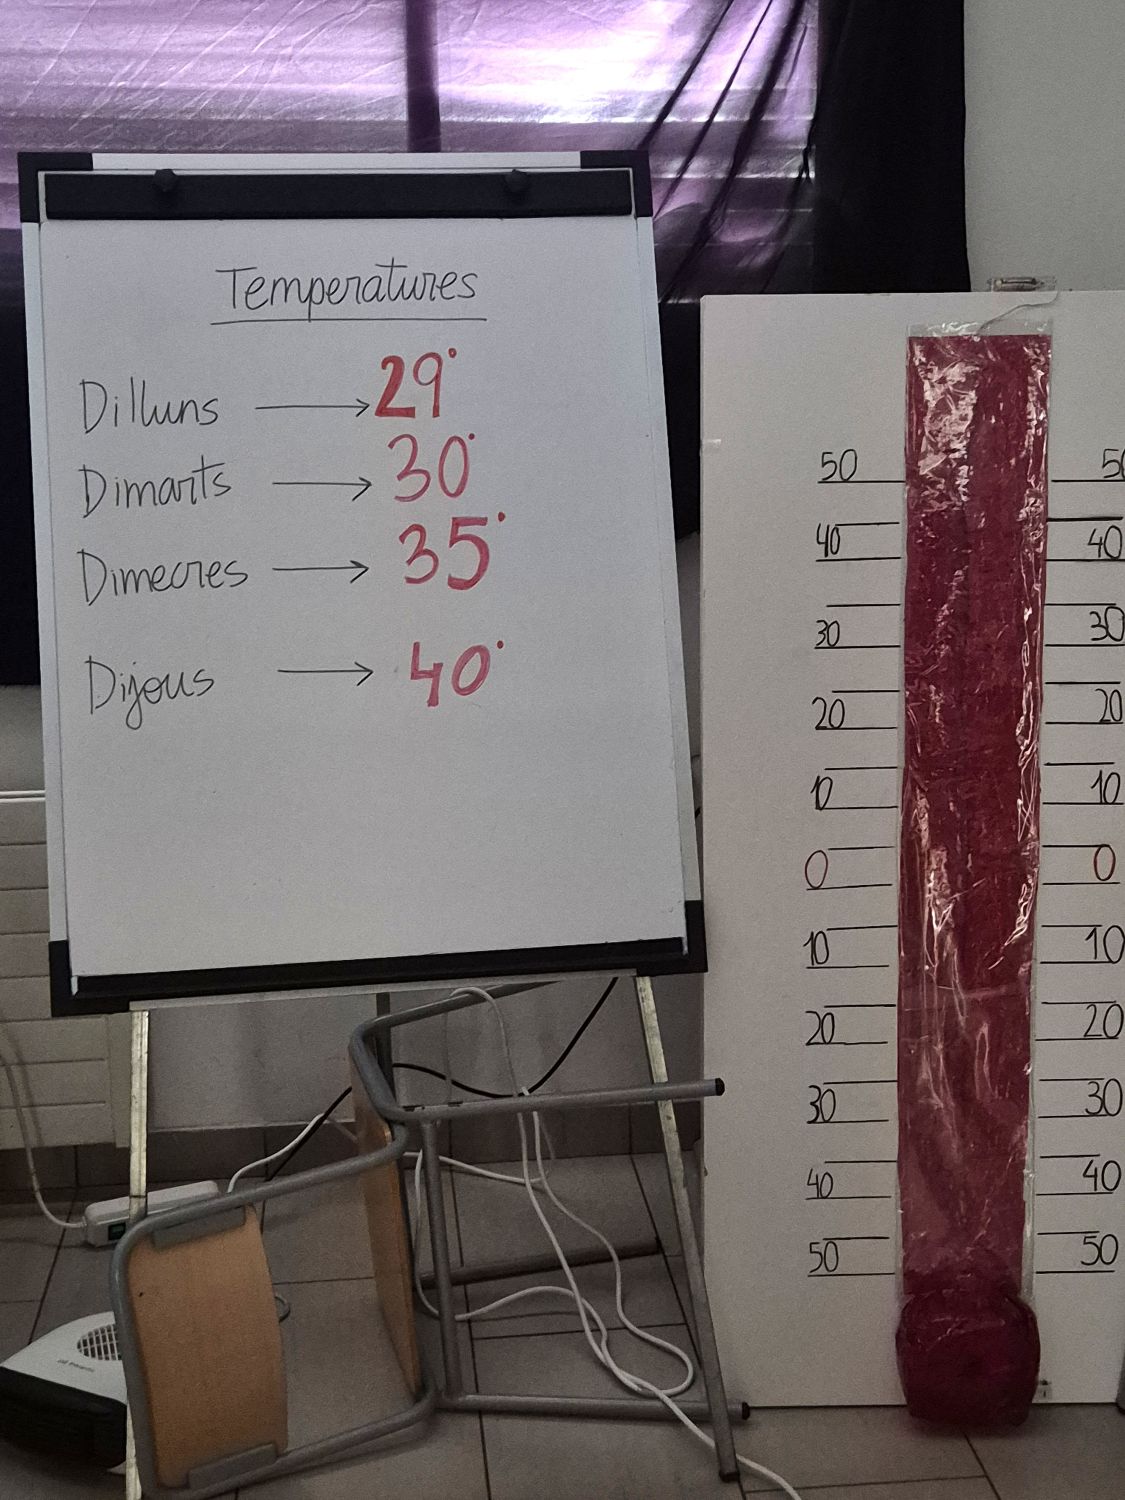 Temperatures
Dilluns → 29°
Dimarts → 30°
Dimecres → 35°
Dijous → 40°
50 50
40 40
30 30
20 20
10 10
0 0
10 10
20 20
30 30
40 40
50 50